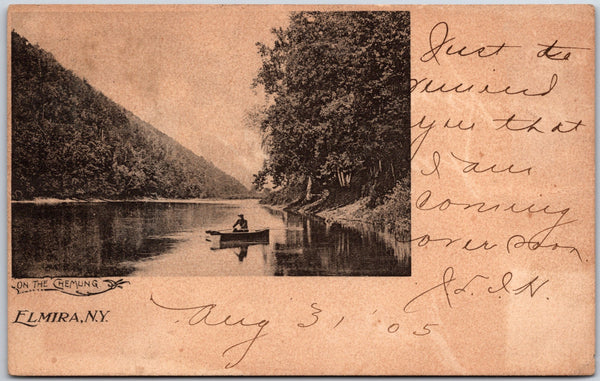 Just to
remind
you that
I am
coming
over soon
ON THE CHEMUNG
ELMIRA, N.Y.
Aug 31 '05